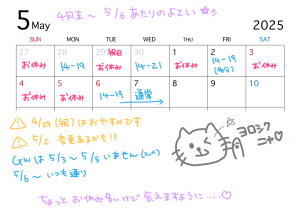 5 May
4月末〜5/6あたりのよてい☆彡
2025
SUN MON TUE WED THU FRI SAT
27 28 29 祝日 30 1 2 3
お休み 14-19 お休み 14-21 お休み 14-19 お休み
4 5 6 7 8 9 10
お休み お休み 14-19 通常
⚠ 4/29(祝)はおやすみです
⚠ 5/2 変更あるかも!?
GWは5/3〜5/5いません
5/6〜いつも通り
ヨロシク
ニャ♡
ちょっとお休み多いけど会えますように....♡